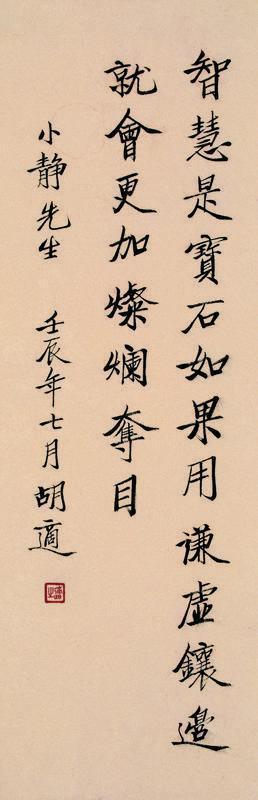 智慧是寶石如果用谦虛鑲邊
就會更加燦爛奪目
小静先生 壬辰年七月胡適